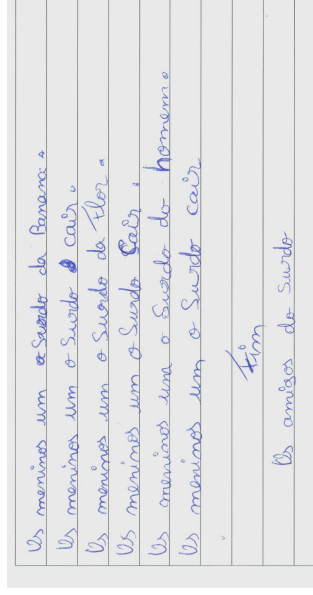 Os meninos um o Surdo da Banana.
Os meninos um o Surdo cair.
Os meninos um o Surdo da Flor.
Os meninos um o Surdo Cair.
Os meninos um o Surdo do homem.
Os meninos um o Surdo cair
Fim
Os amigos do Surdo